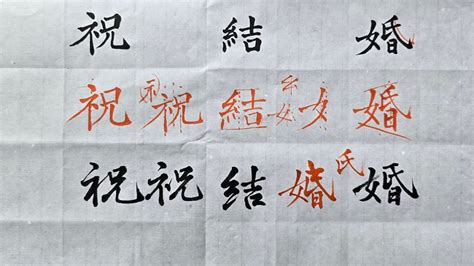 祝 結 婚
祝 ネ 祝 結 糸 女 女 婚
祝 祝 結 婚 氏 婚